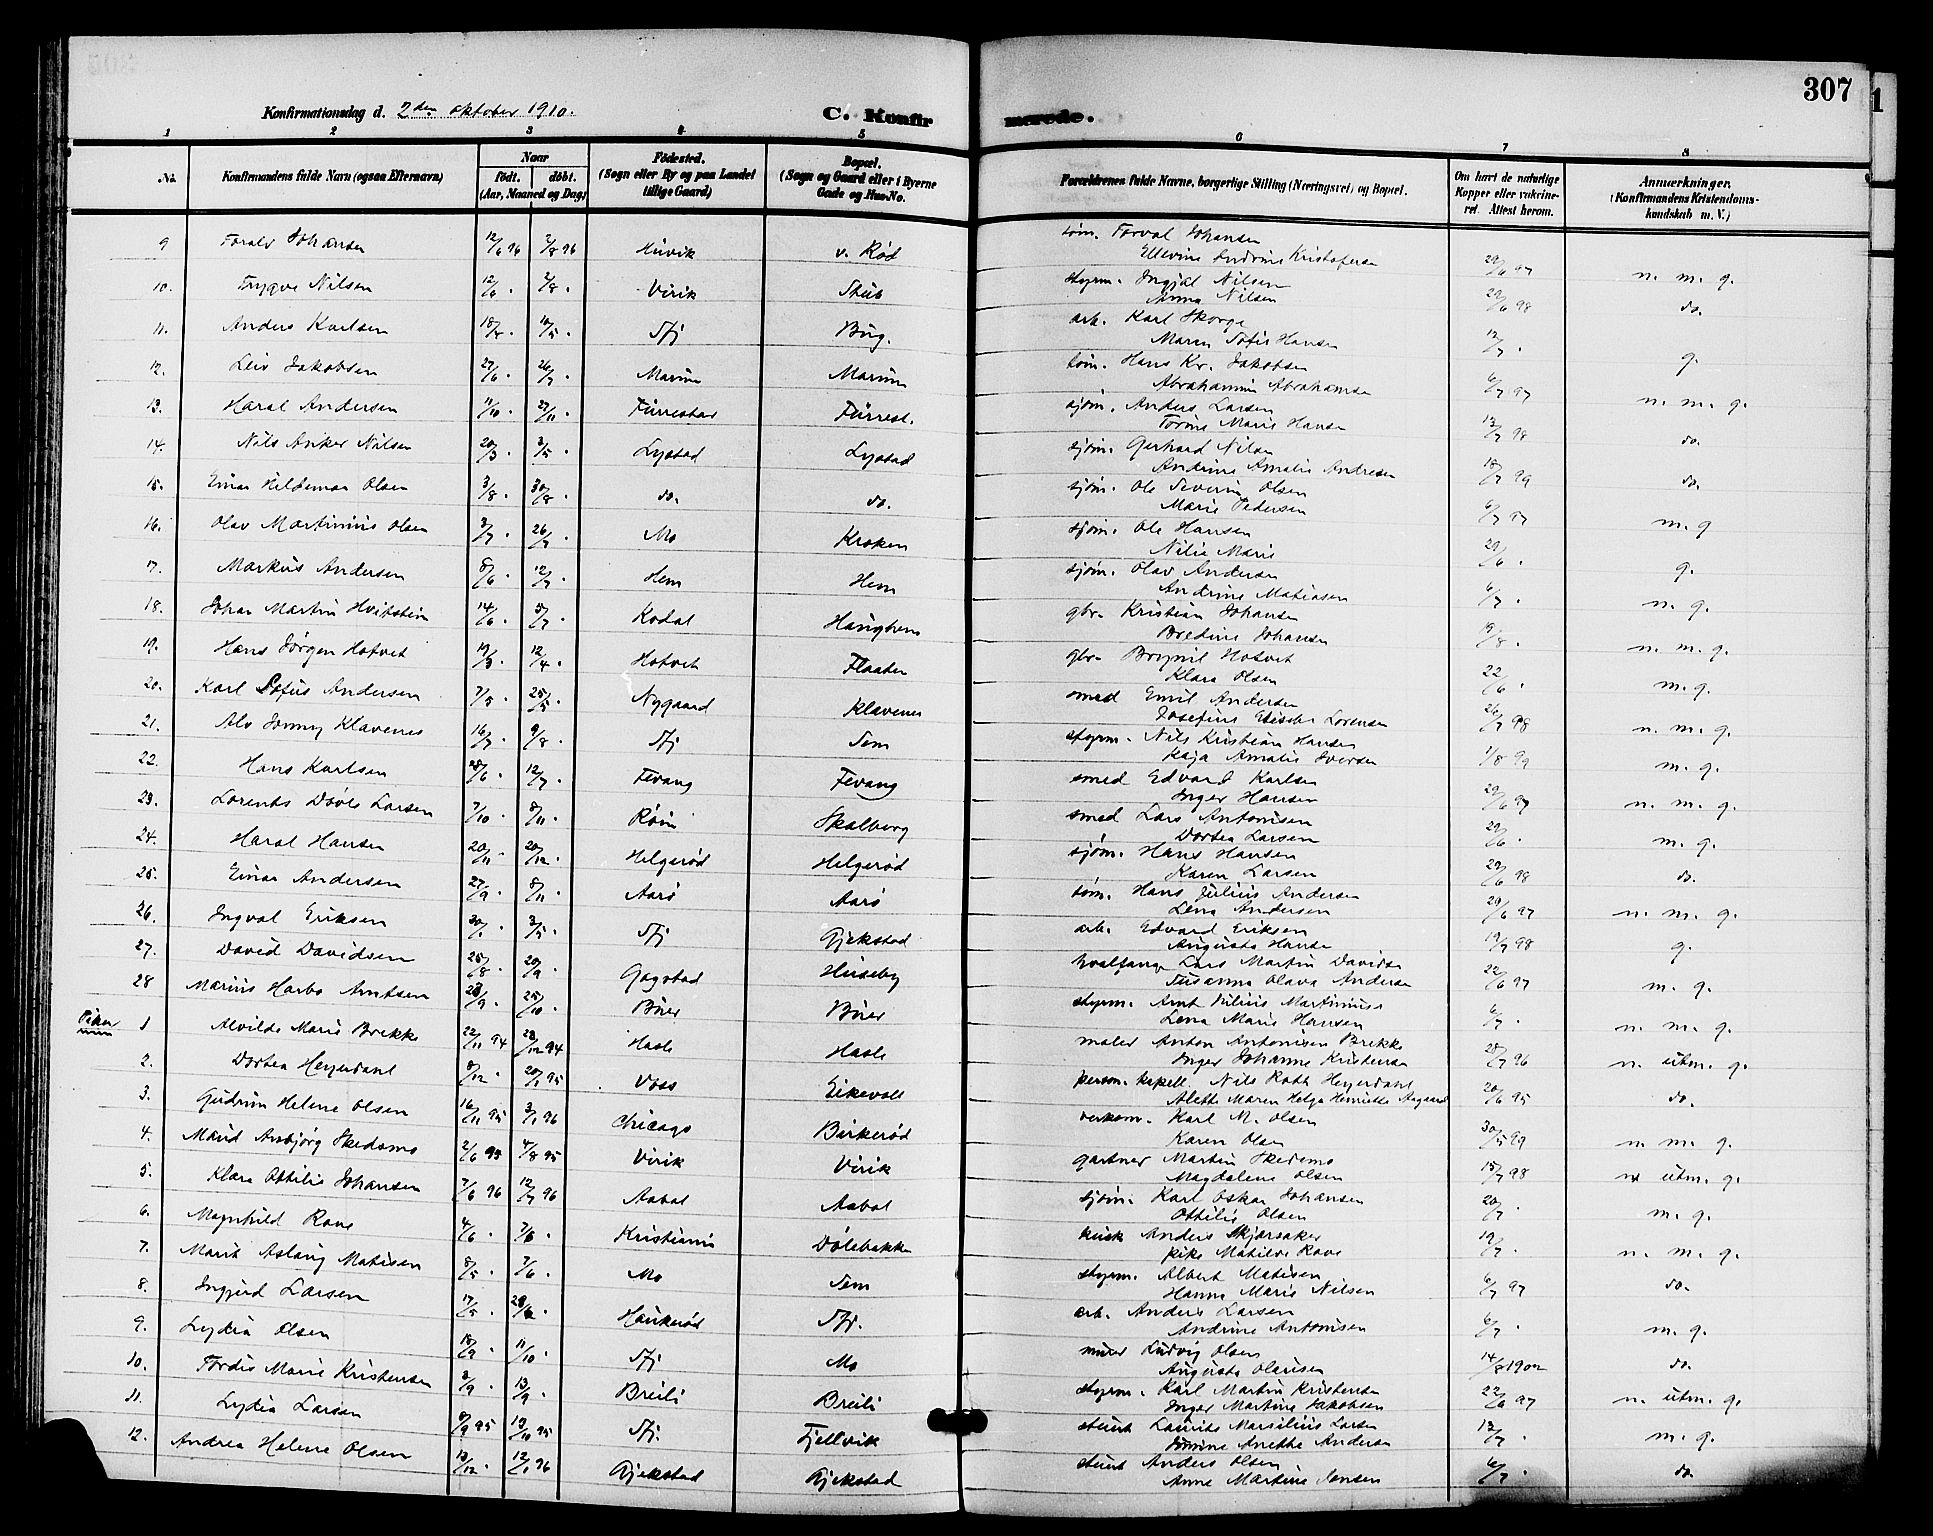 307
Konfirmationsdag d. 2den oktober 1910.
C. Konfirmerede.
1 2 3 4 5 6 7 8
No. Konfirmandens fulde Navn (ogsaa Efternavn) Naar født. døbt. (Aar, Maaned og Dag) Fødested. (Sogn eller By og paa Landet tillige Gaard) Bopæl. (Sogn og Gaard eller i Byerne Gade og Hus-No. Forældrenes fulde Navne, borgerlige Stilling (Næringsvei) og Bopæl. Om havt de naturlige Kopper eller vakcineret. Attest herom. Anmærkninger. (Konfirmandens Kristendomskundskab m. V.)
9 Toralv Johansen 12/6 96 2/8 96 Huvik v. Rød tøm. Torval Johansen
Ellevine Andrine Kristofersen 29/6 97 n. m. g.
10. Trygve Nilsen 12/6 . 2/8 . Virik Stub styrm. Ingjal Nilsen
Anna Nilsen 29/6 98 do.
11. Anders Karlsen 18/4 . 10/5 . Sfj Bug. arb. Karl Skorge
Maren Sofie Hansen 13/7 . g.
12. Leiv Jakobsen 27/6 . 26/7 . Marum Marum tøm. Hans Kr. Jakobsen
Abrahamine Abrahamsen 6/7 97 n. m. g.
13. Haral Andersen 11/10 . 27/11 . Furrestad Furrest. sjøm. Anders Larsen
Torine Marie Hansen 13/7 98 do.
14. Nils Anker Nilsen 20/3 . 3/5 . Lystad Lystad sjøm. Gerhard Nilsen
Andrine Amalie Andresen 18/7 99 do.
15. Einar Hildemar Olsen 3/8 . 30/8 . do. do. sjøm. Ole Severin Olsen
Marie Pedersen 6/7 97 m. g
16. Olav Martinius Olsen 3/7 . 26/7 . Mo Kroken sjøm. Ole Hansen
Nilie Marie 29/6 . g.
17. Markus Andersen 8/6 . 12/7 . Hem Hem sjøm. Olav Andersen
Andrine Matiasen 6/7 . n. g.
18. Johan Martin Hvitstein 14/6 . 5/7 . Kodal Haughem gbr. Kristian Johansen
Bredine Johansen 19/8 . n. m. g.
19. Hans Jørgen Hotvet 19/3 . 12/4 . Hotvet Flaaten gbr. Brynil Hotvet
Klara Olsen 22/6 . m. g.
20. Karl Sofus Andersen 7/5 . 25/5 . Nygaard Klavenes smed Emil Andersen
Josefine Elisebe Lorensen 26/7 98 n. m. g.
21. Alv Jonny Klavenes 16/7 . 9/8 . Sfj Sem styrm. Nils Kristian Hansen
Kaja Amalie Iversen 1/8 99 m. g.
22. Hans Karlsen 28/6 . 12/7 . Fevang Fevang smed Edvard Karlsen
Inger Hansen 29/6 97 n. m. g.
23. Lorents Døvle Larsen 7/10 . 8/11 . Røim Skalberg smed Lars Antonisen
Dortea Larsen 29/6 . m. g.
24. Haral Hansen 20/11 . 20/12 . Helgerød Helgerød sjøm. Hans Hansen
Karen Larsen 29/6 98 do.
25. Einar Andersen 27/9 . 8/11 . Aarø Aarø tøm. Hans Julius Andersen
Lena Andersen 29/6 97 n. m. g.
26. Ingval Eriksen 30/1 . 3/5 . Sfj Gjekstad arb. Edvard Eriksen
Augusta Hansen 19/7 98 g.
27. David Davidsen 25/8 . 20/9 . Gogstad Huseby hvalfanger Lars Martin Davidsen
Susanna Olava Andersen 22/6 97 m. g.
28 Marius Harbo Arntsen 23/9 . 25/10 . Buer Buer styrm. Arnt Julius Martiniussen
Lena Marie Hansen 6/7 . n. m. g.
Piker 1 Alvilde Marie Brekke 22/11 94 23/12 94 Hasle Hasle maler Anton Antonisen Brekke
Inger Johanne Kristensen 28/7 96 n. utm. g.
2. Dortea Heyerdahl 8/12 . 20/1 95 Voss Eikevoll person. kapell. Nils Rott Heyerdahl
Alette Maren Helga Henriette Aagaard 20/6 95 do.
3. Gudrun Helene Olsen 16/11 95 3/1 96 Chicago Birkerød verksm. Karl M. Olsen
Karen Olsen 30/5 99 n m. g.
4. Maud Ambjørg Skedsmo 2/6 95 4/8 95 Virik Virik gartner Martin Skedsmo
Magdalene Olsen 15/7 98 utm. g.
5. Klara Ottilie Johansen 7/6 96 12/7 96 Aabol Aabol sjøm. Karl Oskar Johansen
Ottilie Olsen 20/7 . m. g.
6. Magnhild Rove 4/6 . 7/6 . Kristiania Dølebakken kusk Anders Skjørsaker
pike Matilde Rove 19/7 . n. m. g.
7. Marit Aslaug Matisen 8/5 . 7/6 . Mo Sem styrm. Albert Matisen
Hanna Marie Nilsen 6/7 97 do.
8. Ingjerd Larsen 17/5 . 28/6 . Haukerød Sfj. arb. Anders Larsen
Andrine Antonisen 6/7 . m. g.
9. Lydia Olsen 18/9 . 11/10 . Sfj Mo murer Ludvig Olsen
Augusta Olausen 14/8 1902 do.
10. Tordis Marie Kristensen 3/9 . 13/9 . Breili Breili styrm. Karl Martin Kristensen
Inger Martine Jakobsen 22/6 97 n. utm. g.
11. Lydia Larsen 8/9 95 13/10 95 Sfj. Fjellvik stuert Laurits Marsilius Larsen
Anette Andersen 13/7 . m. g.
12. Andrea Helene Olsen 13/12 . 12/1 96 Gjekstad Gjekstad stuert Anders Olsen
Anne Martine Jensen 6/7 . do.